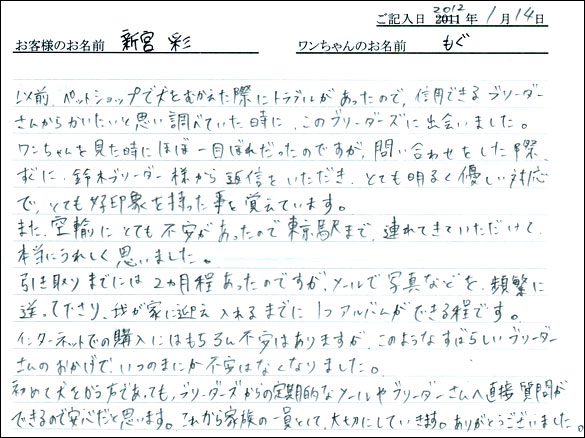 ご記入日 2012 2011年 1月14日
お客様のお名前 新宮 彩 ワンちゃんのお名前 もぐ
以前、ペットショップで犬をむかえた際にトラブルがあったので、信用できるブリーダー
さんからかいたいと思い調べていた時に、このブリーダーズに出会いました。
ワンちゃんを見た時にほぼ一目ぼれだったのですが、問い合わせをした際、
すぐに、鈴木ブリーダー様から返信をいただき、とても明るく優しい対応
で、とても好印象を持った事を覚えています。
また、空輸にとても不安があったので東京駅まで、連れてきていただけて、
本当にうれしく思いました。
引き取りまでには2ヵ月程あったのですが、メールで写真などを、頻繁に
送って下さり、我が家に迎え入れるまでに1つアルバムができる程です。
インターネットでの購入にはもちろん不安はありますが、このようなすばらしいブリーダー
さんのおかげで、いつのまにか不安はなくなりました。
初めて犬をかう方であっても、ブリーダーズからの定期的なメールやブリーダーさんへ直接質問が
できるので安心だと思います。これから家族の一員として、大切にしていきます。ありがとうございました。